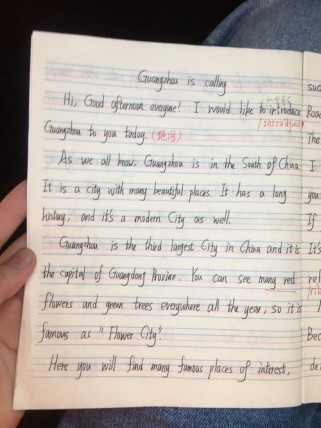 Guangzhou is calling
Hi, Good afternoon everyone! I would like to introduce
Guangzhou to you today.
As we all know, Guangzhou is in the South of China
It is a city with many beautiful places. It has a long
history, and it's a modern City as well.
Guangzhou is the third largest City in China and it is
the capital of Guangdong Province. You can see many red
flowers and green trees everywhere all the year, so it is
famous as "Flower City".
Here you will find many famous places of interest,